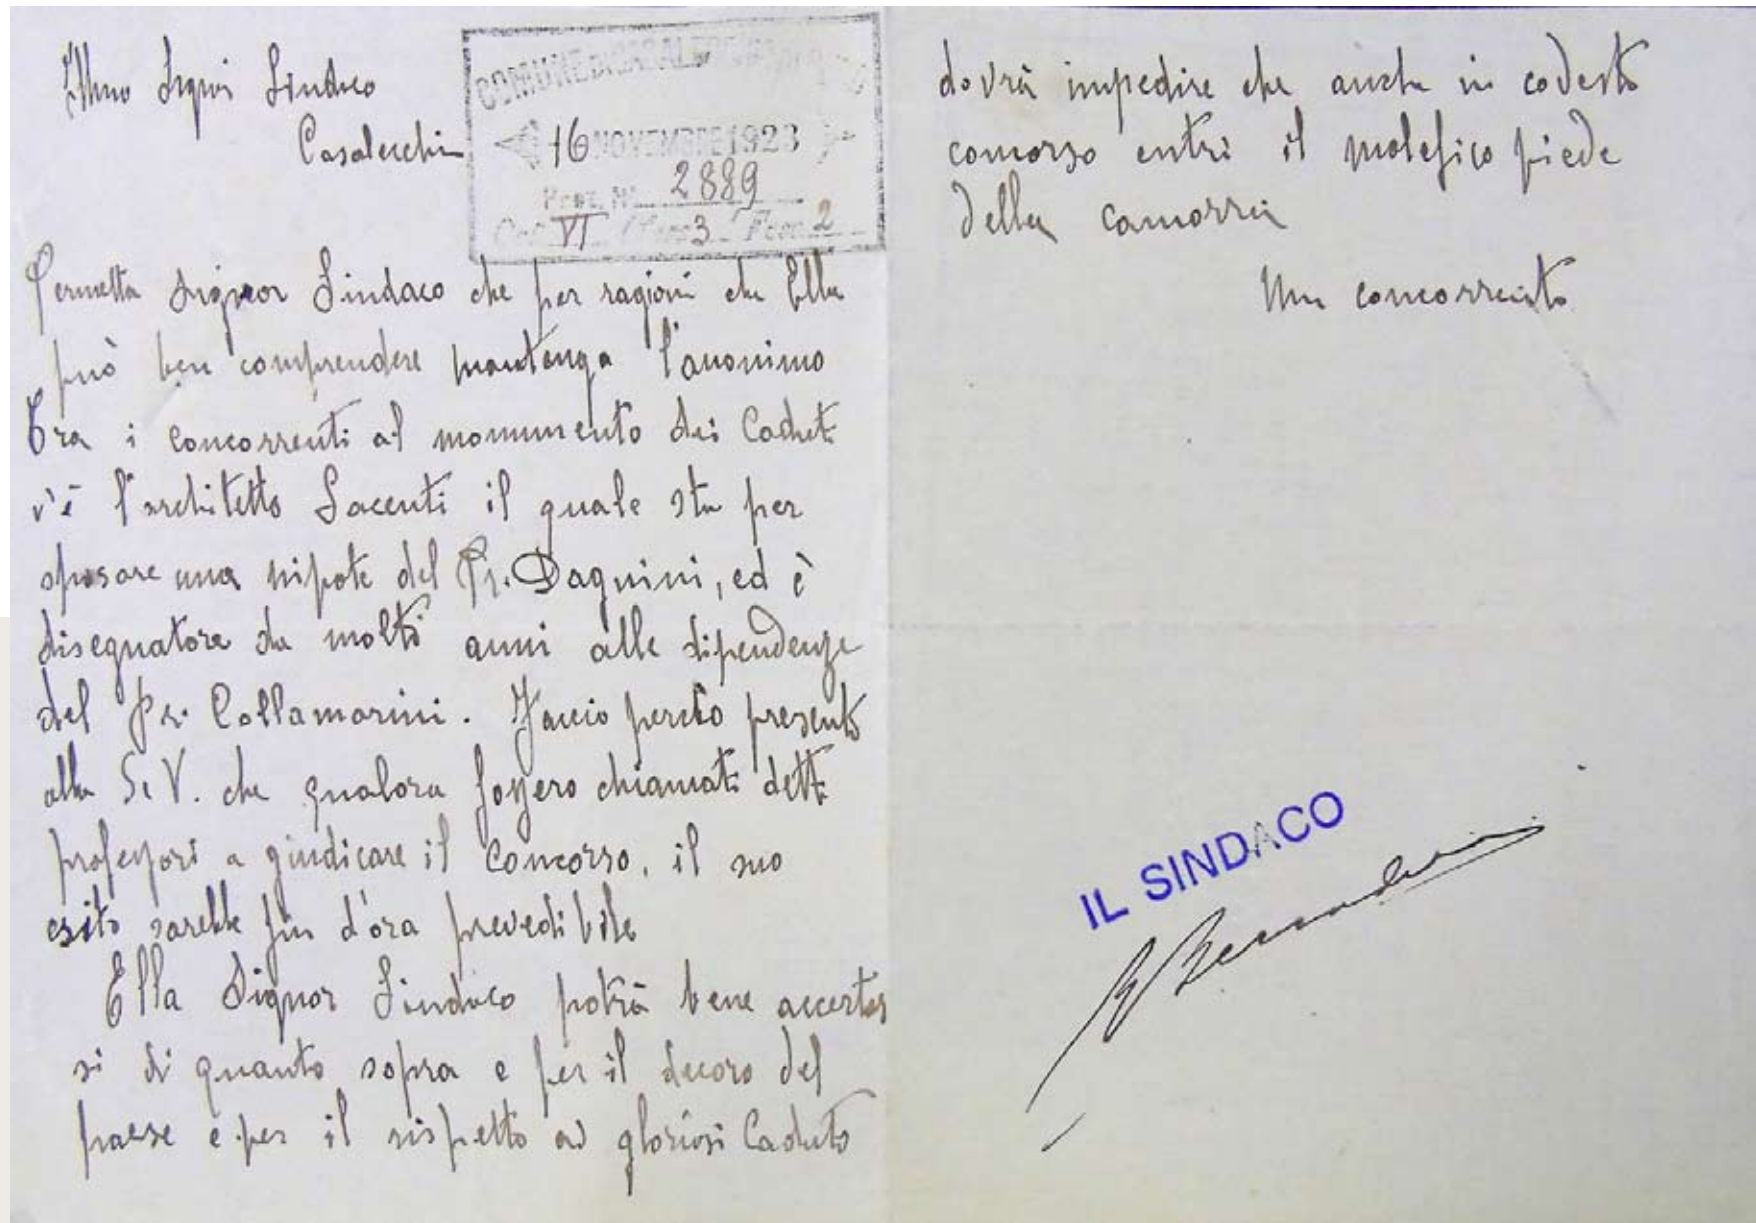 Illmo Signor Sindaco
Casalecchio
COMUNE DI CASALECCHIO
16 NOVEMBRE 1923
Prot. N. 2889
Cat. VI Class 3 Fasc. 2
Permetta Signor Sindaco che per ragioni che Ella
può ben comprendere mantenga l'anonimo
Tra i concorrenti al monumento dei Caduti
v'è l'architetto Sacenti il quale sta per
sposare una nipote del Pr. Dagnini, ed è
disegnatore da molti anni alle dipendenze
del Pr. Collamarini. Faccio perciò presente
alla S.V. che qualora fossero chiamati detti
professori a giudicare il concorso, il suo
esito sarebbe fin d'ora prevedibile
Ella Signor Sindaco potrà bene accertar
si di quanto sopra e per il decoro del
paese e per il rispetto ai gloriosi Caduti
dovrà impedire che anche in codesto
concorso entri il malefico piede
della camorra
Un concorrente
IL SINDACO